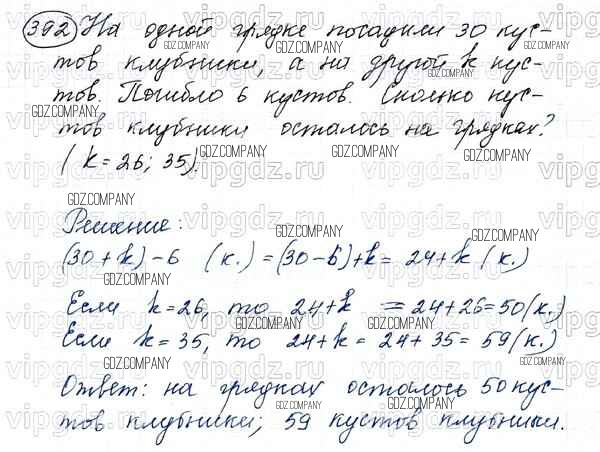 392 На одной грядке посадили 30 кус-
тов клубники, а на другой k кус-
тов. Погибло 6 кустов. Сколько кус-
тов клубники осталось на грядках?
(k = 26; 35).
Решение:
(30 + k) - 6 (к.) = (30 - 6) + k = 24 + k (к.)
Если k = 26, то 24 + k = 24 + 26 = 50 (к.)
Если k = 35, то 24 + k = 24 + 35 = 59 (к.)
Ответ: на грядках осталось 50 кус-
тов клубники; 59 кустов клубники.